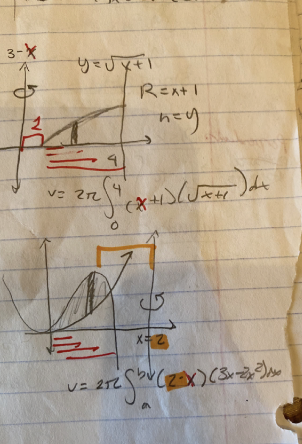 3-x
y = √x+1
R = x+1
h = y
1
4
v = 2π ∫₀⁴ (x+1)(√x+1) dx
x = 2
v = 2π ∫ₐᵇ (2-x)(3x-2x²) dx